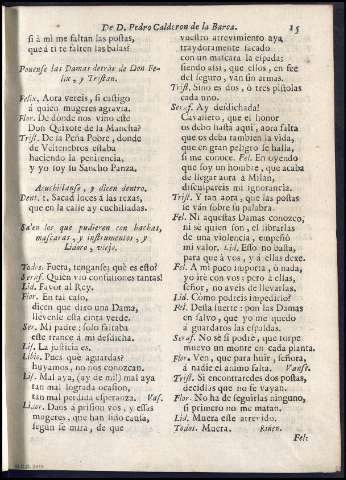 De D. Pedro Calderon de la Barca. 15
si à mi me faltan las postas,
que à ti te falten las balas!
Ponense las Damas detràs de Don Fe-
lix, y Tristan.
Felix. Aora vereis, si castigo
á quien mugeres agravia.
Flor. De donde nos vino este
Don Quixote de la Mancha?
Trist. De la Peña Pobre, donde
de Veltenebros estaba
haciendo la penitencia,
y yo soy su Sancho Panza.
Acuchillanse, y dicen dentro.
Dent. 1. Sacad luces à las rexas,
que en la calle ay cuchilladas.
Salen los que pudieren con hachas,
mascaras, y instrumentos, y
Lidoro, viejo.
Todos. Fuera, tenganse; què es esto?
Seraf. Quièn viò confusiones tantas!
Lid. Favor al Rey.
Flor. En tal caso,
dicen que diro una Dama,
llevense esta cinta verde.
Ser. Mi padre: solo faltaba
este trance à mi desdicha.
Lis. La justicia es.
Libio. Pues què aguardas?
huyamos, no nos conozcan.
Lis. Mal aya, (ay de mi!) mal aya
tan mal lograda ocasion,
tan mal perdida esperanza. Vas.
Lidor. Daos à prision vos, y essas
mugeres, que han sido causa,
segun se mira, de que
vuestro atrevimiento aya
traydoramente sacado
con un mascara la espada;
siendo assi, que ellos, en fee
del seguro, van sin armas.
Trist. Sino es dos, ò tres pistolas
cada uno.
Seraf. Ay desdichada!
Cavallero, que el honor
os debo hasta aqui, aora falta
que os deba tambien la vida,
que en gran peligro se halla,
si me conoce. Fel. En oyendo
que soy un hombre, que acaba
de llegar aora à Milan,
disculpareis mi ignorancia.
Trist. Y tan aora, que las postas
se ván sobre su palabra.
Fel. Ni aquestas Damas conozco,
ni se quien son, el librarlas
de una violencia, empeñò
mi valor. Lid. Esto no basta,
para que à vos, y à ellas dexe.
Fel. A mi poco importa, ò nada,
yo irè con vos; pero à ellas,
señor, no aveis de llevarlas.
Lid. Como podreis impedirlo?
Fel. Desta suerte: pon las Damas
en salvo, que yo me quedo
à guardaros las espaldas.
Seraf. No sè si podrè, que torpe
muevo un monte en cada planta.
Flor. Ven, que para huir, señora,
à nadie el animo falta. Vanse.
Trist. Si encontraredes dos postas,
decidlas que no se vayan.
Flor. No ha de seguirlas ninguno,
si primero no me matan.
Lid. Muera este atrevido.
Todos. Muera. Riñen.
Fel: